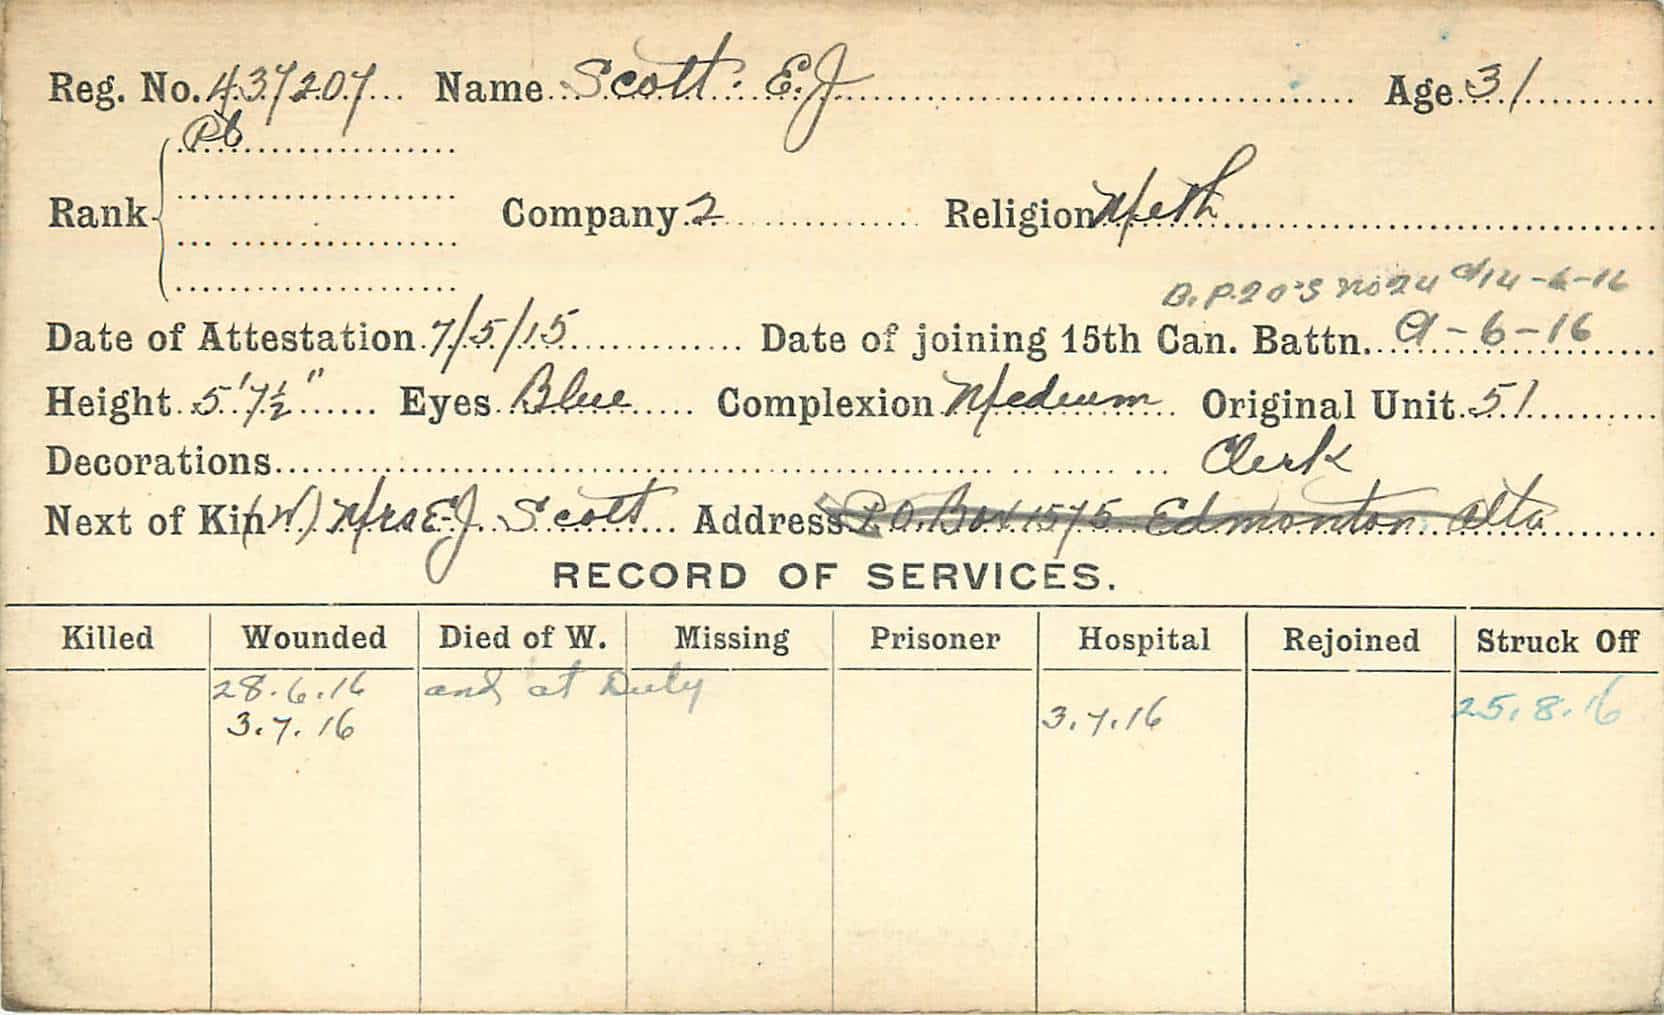 Reg. No. 437207 Name Scott. E.J Age 31
Pte
Rank Company 2 Religion Meth
B.P.20's No 24 d/14-6-16
Date of Attestation 7/5/15 Date of joining 15th Can. Battn. 9-6-16
Height 5'7½" Eyes Blue Complexion Medium Original Unit 51
Decorations Clerk
Next of Kin (W) Mrs E.J. Scott Address P.O. Box 1575 Edmonton Alta
RECORD OF SERVICES.
Killed Wounded Died of W. Missing Prisoner Hospital Rejoined Struck Off
28.6.16 and at Duty
3.7.16 3.7.16 25.8.16